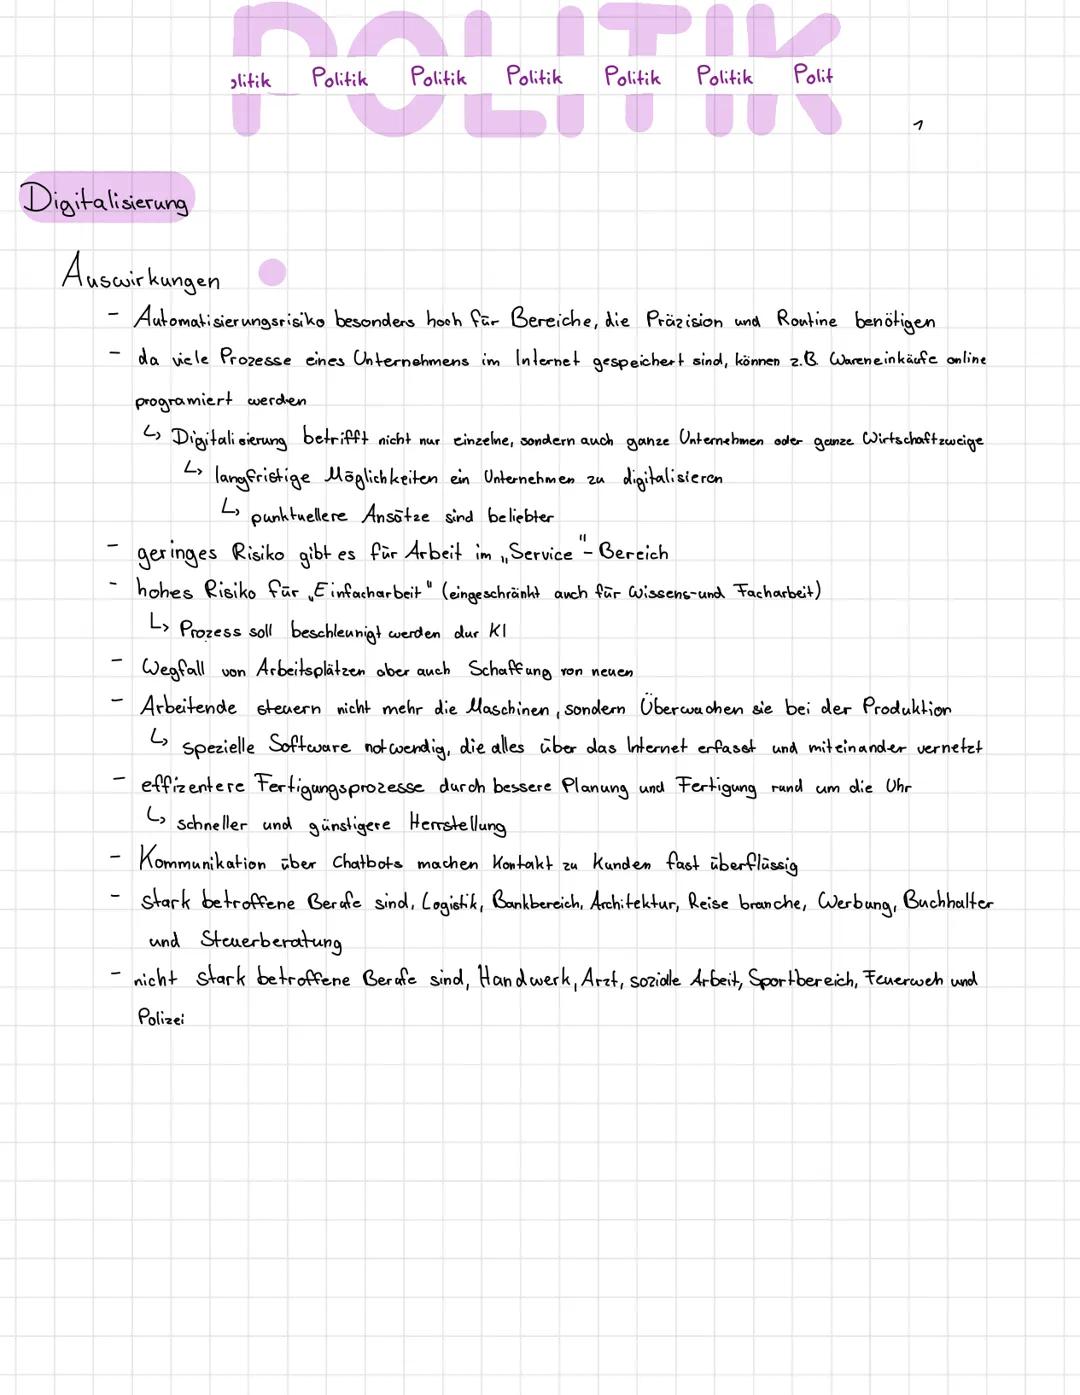 POLITIK
olitik Politik Politik Politik Politik Politik Polit
1
Digitalisierung
Auswirkungen
- Automatisierungsrisiko besonders hoch für Bereiche, die Präzision und Routine benötigen
- da viele Prozesse eines Unternehmens im Internet gespeichert sind, können z.B. Wareneinkäufe online
programiert werden
↳ Digitalisierung betrifft nicht nur einzelne, sondern auch ganze Unternehmen oder ganze Wirtschaftzweige
↳ langfristige Möglichkeiten ein Unternehmen zu digitalisieren
↳ punktuellere Ansätze sind beliebter
- geringes Risiko gibt es für Arbeit im „Service"- Bereich
- hohes Risiko für „Einfacharbeit" (eingeschränkt auch für Wissens-und Facharbeit)
↳ Prozess soll beschleunigt werden dur KI
- Wegfall von Arbeitsplätzen aber auch Schaffung von neuen
- Arbeitende steuern nicht mehr die Maschinen, sondern Überwachen sie bei der Produktion
↳ spezielle Software notwendig, die alles über das Internet erfasst und miteinander vernetzt
- effizentere Fertigungsprozesse durch bessere Planung und Fertigung rund um die Uhr
↳ schneller und günstigere Herrstellung
- Kommunikation über Chatbots machen Kontakt zu Kunden fast überflüssig
- stark betroffene Berufe sind, Logistik, Bankbereich, Architektur, Reise branche, Werbung, Buchhalter
und Steuerberatung
- nicht stark betroffene Berufe sind, Handwerk, Arzt, soziale Arbeit, Sportbereich, Feuerweh und
Polizei